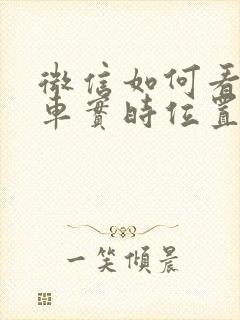 微信如何看
車實時位置
一笑傾晨